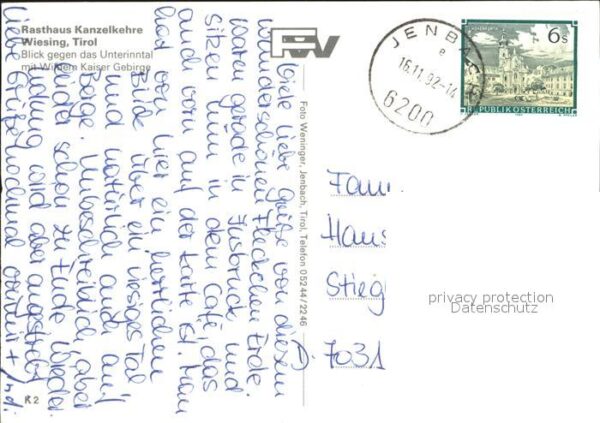 Rasthaus Kanzelkehre
Wiesing, Tirol
Blick gegen das Unterinntal
mit Wildem Kaiser Gebirge
Viele liebe Grüße von diesem
wunderschönen Fleckchen Erde
waren gerade in Insbruck und
sitzen nun in dem Café, das
auch vorn auf der Karte ist. Man
hat von hier ein herrlichen
Blick über ein riesiges Tal
und natürlich auch auf
Berge. Unbeschreiblich aber
leider schon zu Ende. Wieder
wird aber angestrebt
Liebe Grüße nochmal
Foto Weninger, Jenbach, Tirol, Telefon 05244/2246
K 2
JENBACH
e
16.11.92-14
6200
6 S
REPUBLIK ÖSTERREICH
Fam
Hans
Stieg
7031
privacy protection
Datenschutz